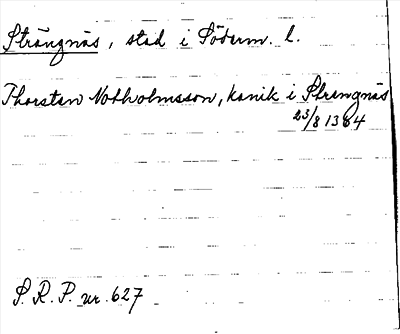 Strängnäs, stad i Söderm. l.
Thorsten Notholmsson, kanik i Strengnäs
23/8 1384
S. R. P. nr. 627